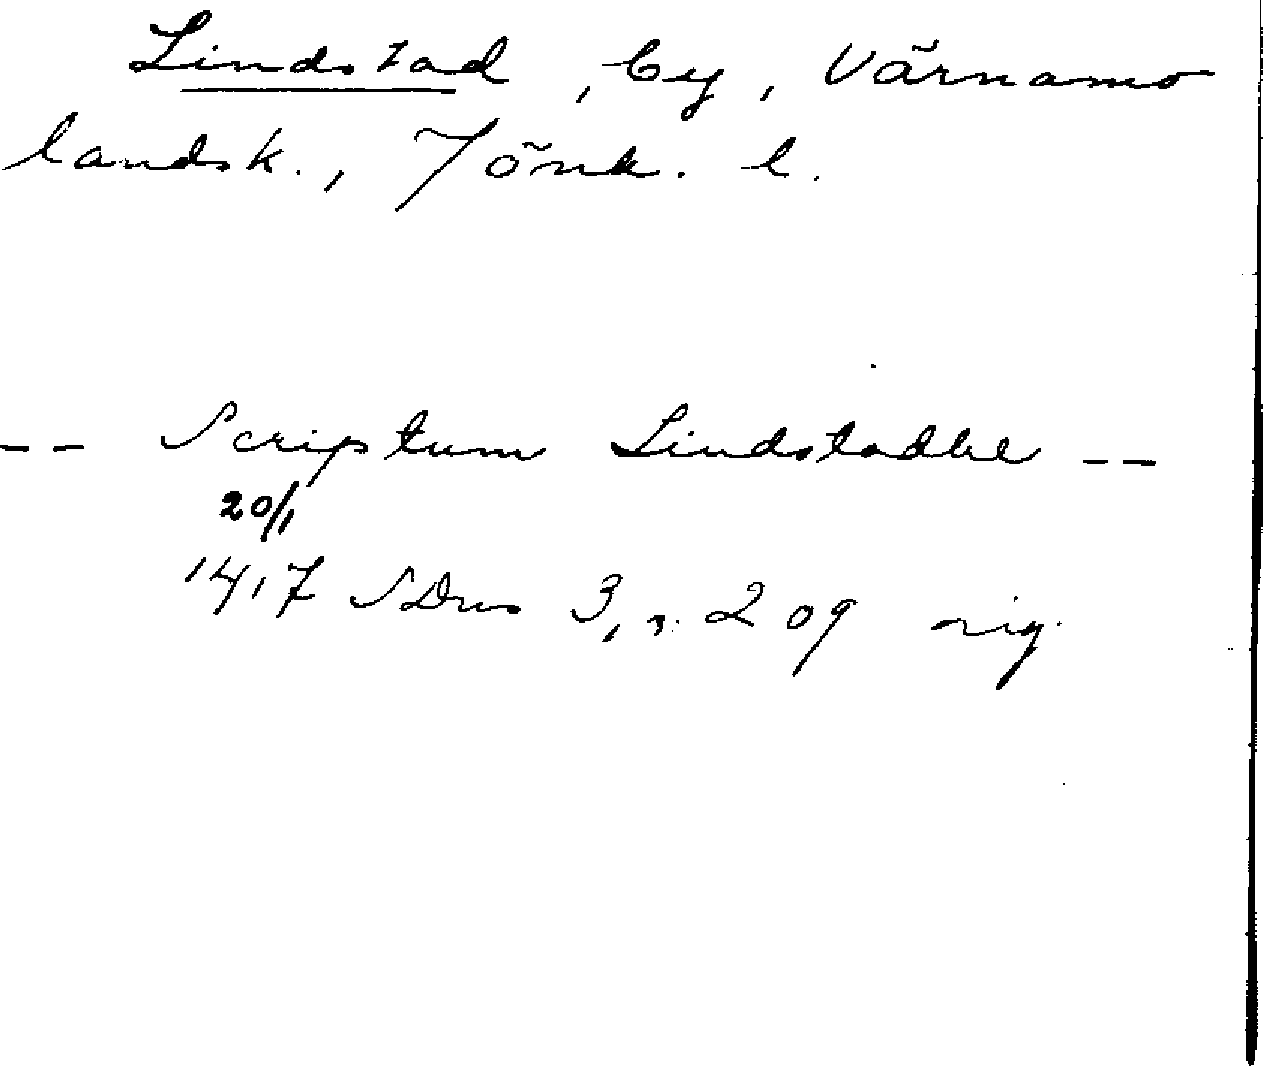 Lindstad, by, Värnamo
landsk., Jönk. l.
-- Scriptum Lindstadhe --
20/1
1417 SDns 3, s. 209 sig.